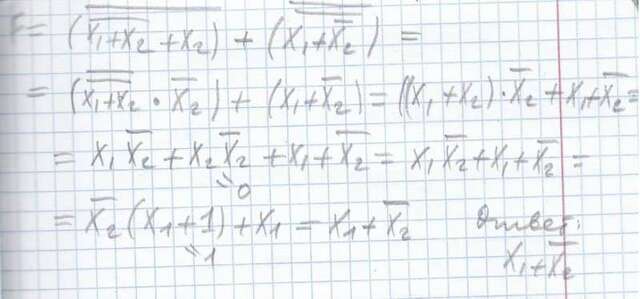 F = (\overline{\overline{x_1+x_2}+x_2}) + (\overline{\overline{x_1+\overline{x_2}}}) =
= (\overline{\overline{x_1+x_2}} · \overline{x_2}) + (x_1+\overline{x_2}) = ((x_1+x_2)·\overline{x_2} + x_1+\overline{x_2} =
= x_1\overline{x_2} + x_2\overline{x_2} + x_1 + \overline{x_2} = x_1\overline{x_2} + x_1 + \overline{x_2} =
=0
= \overline{x_2}(x_1+1) + x_1 = x_1+\overline{x_2} Ответ:
=1
x_1+\overline{x_2}